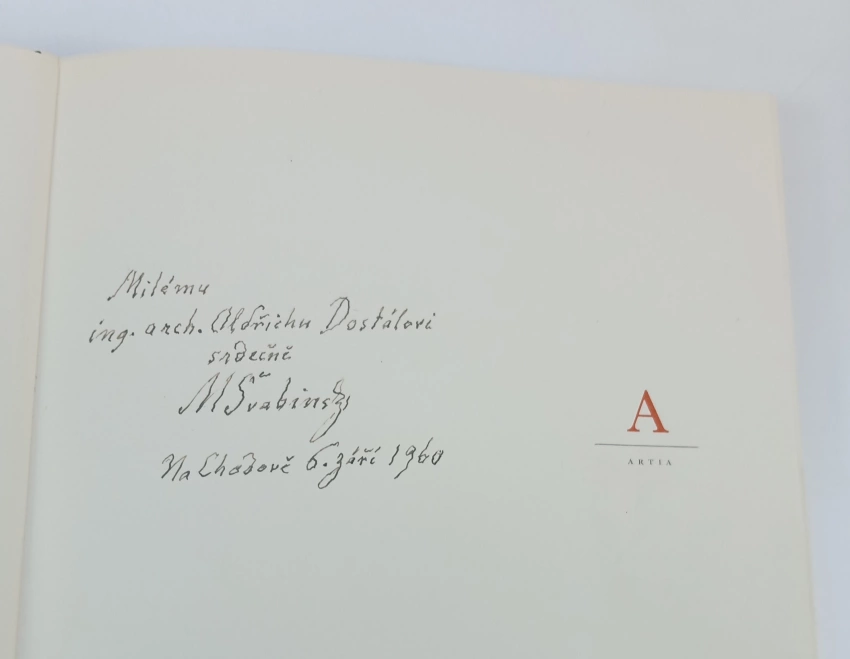 Milému
ing. arch. Oldřichu Dostálovi
srdečně
MŠvabinský
Na Chodově 6. září 1960
A
ARTIA